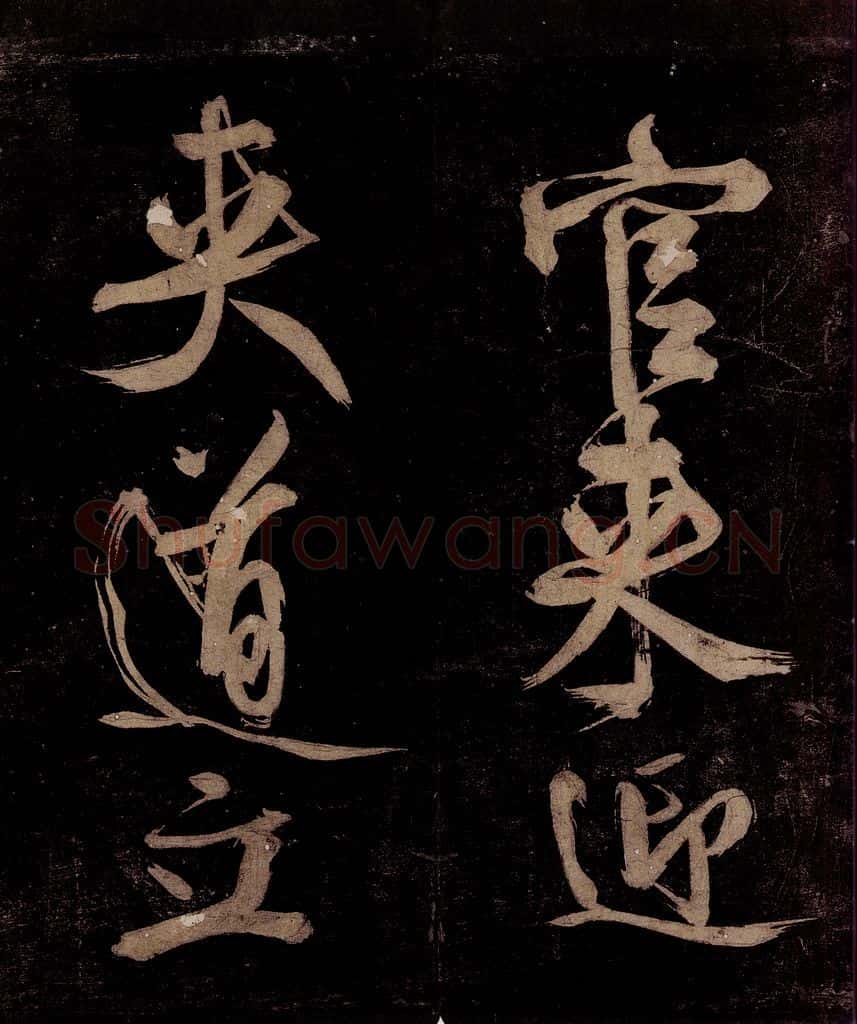 官来迎
夹道立
Shufawang.CN